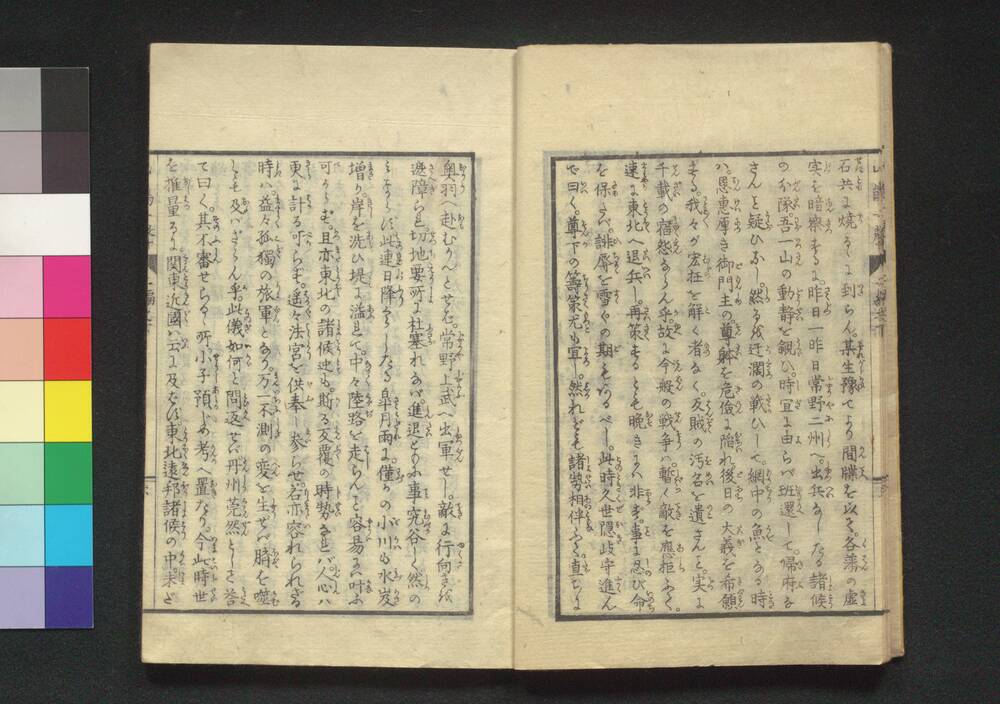 石共に焼るゝに到らん。某生豫てより間牒を以そ。各藩の虚
実を暗察するに。昨日一昨日常野二州へ。出兵なしたる諸候
の介隊吾一山の動静を覗ひ。時宜に由らバ班還して。帰府な
さんと疑ひなし。然るを迂濶の戦ひして。網中の魚となる時
ハ。恩恵厚き御門主の尊躰を危儉に陥れ。後日の大義を希願
する。我々が宏枉を解く者なく。反賊の汚名を遺さんと。実に
千載の宿怨ならん乎。故に今般の戦争ハ。暫く敵を應拒ふて。
速に東北へ退兵し。再策するとも晩きにハ非ず。事に忍び命
を保さバ。誹辱を雪ぐの期もあるべし。此時久世隠岐守進ん
で曰く。尊下の籌策尤も宜し。然れども諸勢相伴ふて。直ちに
奥羽へ赴むかんとせバ。常野上武へ出軍せし。敵に行向き絃
遮障られ。切地要所に杜塞れなバ。進退とも小事究谷し。然の
みならバ此連日降ならしたる。皐月雨に。僅かの小川も水岌
増り。岸を洗ひ堤に溢れて。中々陸路を走らんと容易にハ叶ふ
可からず。且亦東北の諸候迚も。斯る反覆の時勢なれバ。人心ハ
更に計る可らず。遥々法宮を供奉し参らせ。若亦容れられざる
時ハ。益々孤獨の旅軍となり。万一不測の変を生せバ。臍を噬
とも及バざらん乎。此儀如何と問返せバ。丹州莞然としそ答
て曰く。其不審せらるゝ所小子預しめ考へ置たり。今此時世
を推量るに関東近國ハ云に及バず。東北遠邦諸候の中。未ど